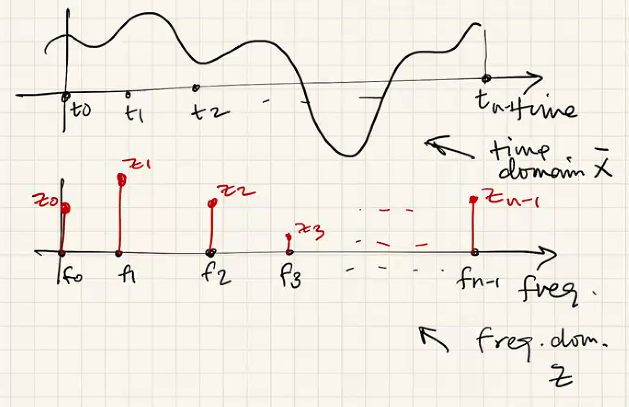 t0 t1 t2 - - — tn-1 time
time
domain x̄
z0 z1 z2 z3 - - - zn-1
f0 f1 f2 f3 - - - - fn-1 freq.
freq. dom.
z